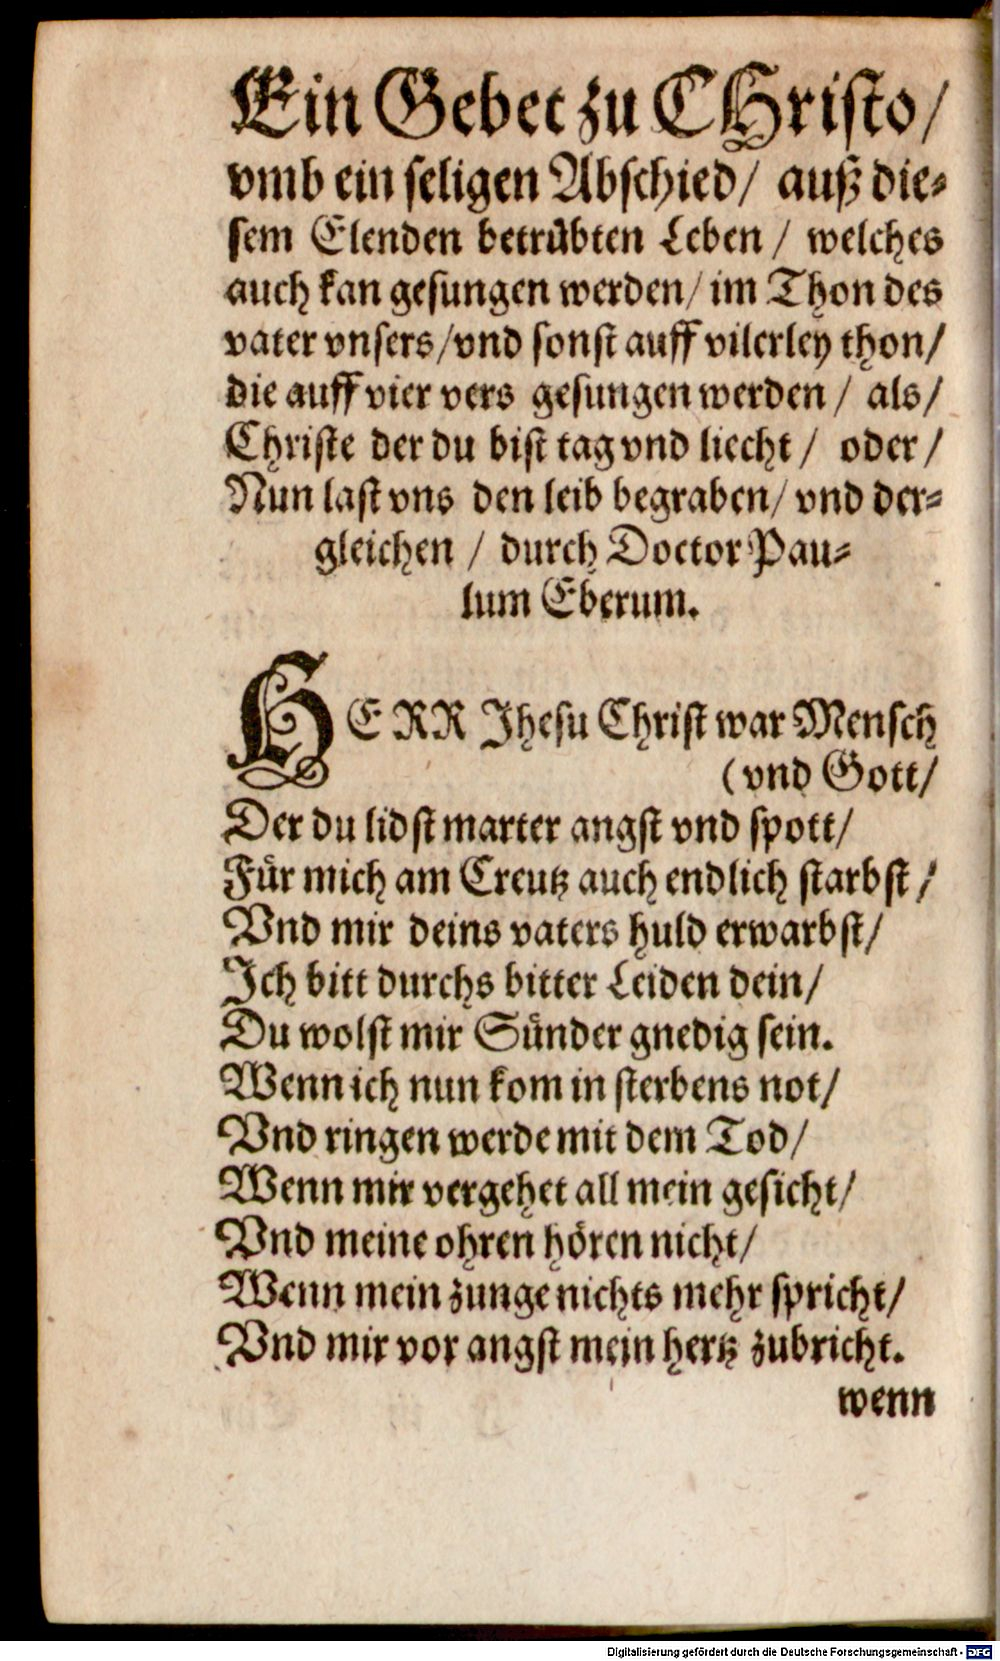 Ein Gebet zu CHristo/
vmb ein seligen Abschied/ auß die⸗
sem Elenden betrübten Leben/ welches
auch kan gesungen werden/ im Thon des
vater vnsers/vnd sonst auff vilerley thon/
die auff vier vers gesungen werden/ als/
Christe der du bist tag vnd liecht/ oder/
Nun last vns den leib begraben/ vnd der⸗
gleichen/ durch Doctor Pau⸗
lum Eberum.
HERR Jhesu Christ war Mensch
(vnd Gott/
Der du lidst marter angst vnd spott/
Für mich am Creutz auch endlich starbst/
Vnd mir deins vaters huld erwarbst/
Ich bitt durchs bitter Leiden dein/
Du wolst mir Sünder gnedig sein.
Wenn ich nun kom in sterbens not/
Vnd ringen werde mit dem Tod/
Wenn mir vergehet all mein gesicht/
Vnd meine ohren hören nicht/
Wenn mein zunge nichts mehr spricht/
Vnd mir vor angst mein hertz zubricht.
wenn
Digitalisierung gefördert durch die Deutsche Forschungsgemeinschaft - DFG